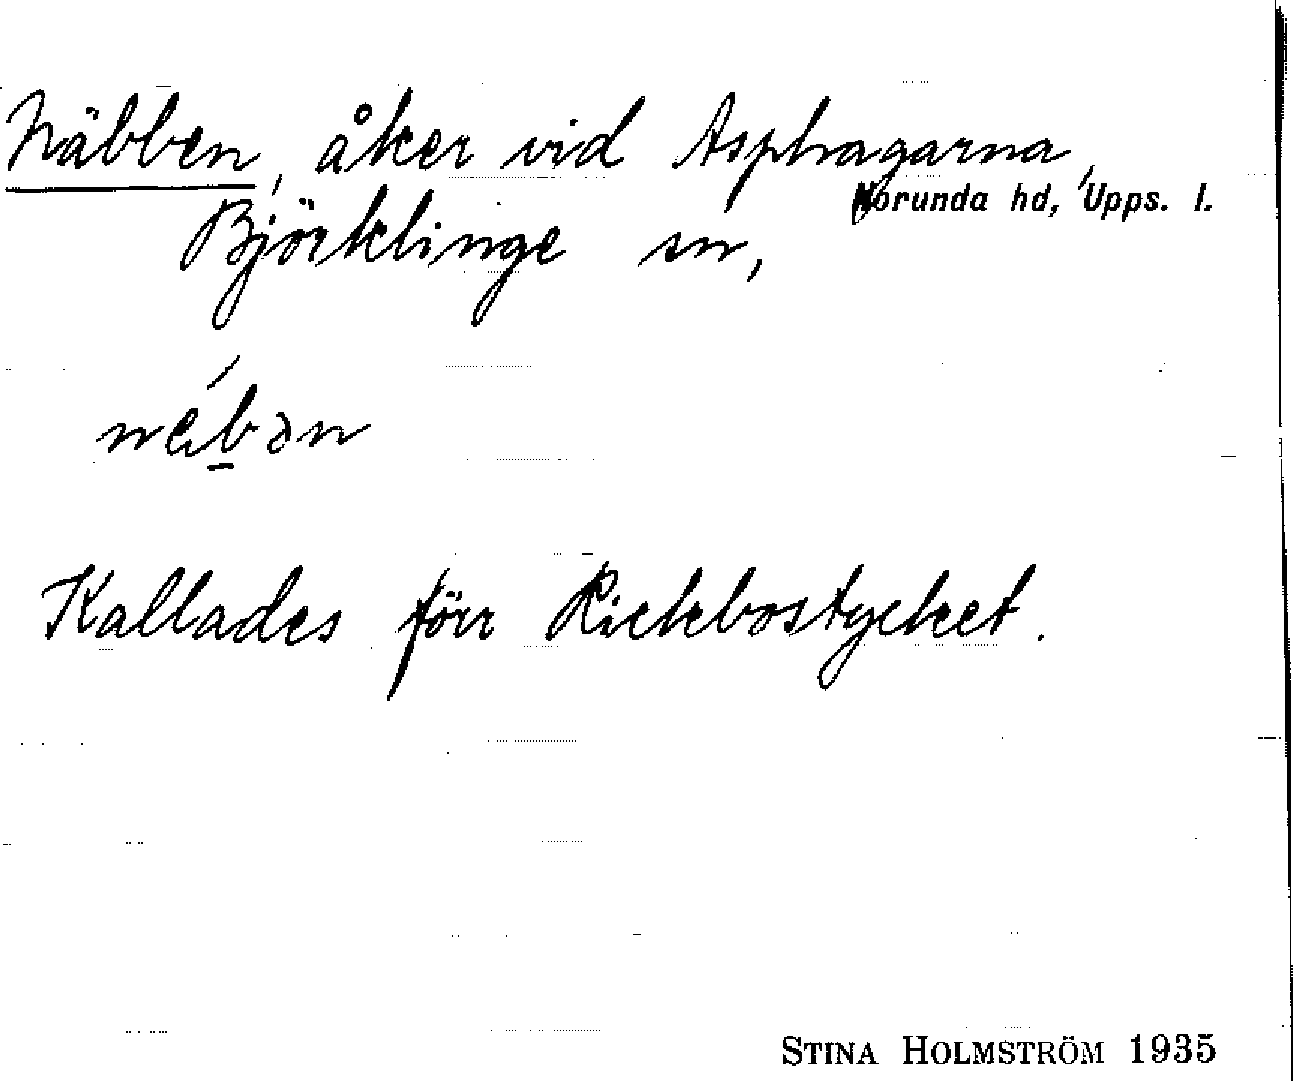 Näbben, åker vid Asphagarna,
Norunda hd, Upps. l.
Björklinge sn,
Kallades förr Rickbostycket.
STINA HOLMSTRÖM 1935